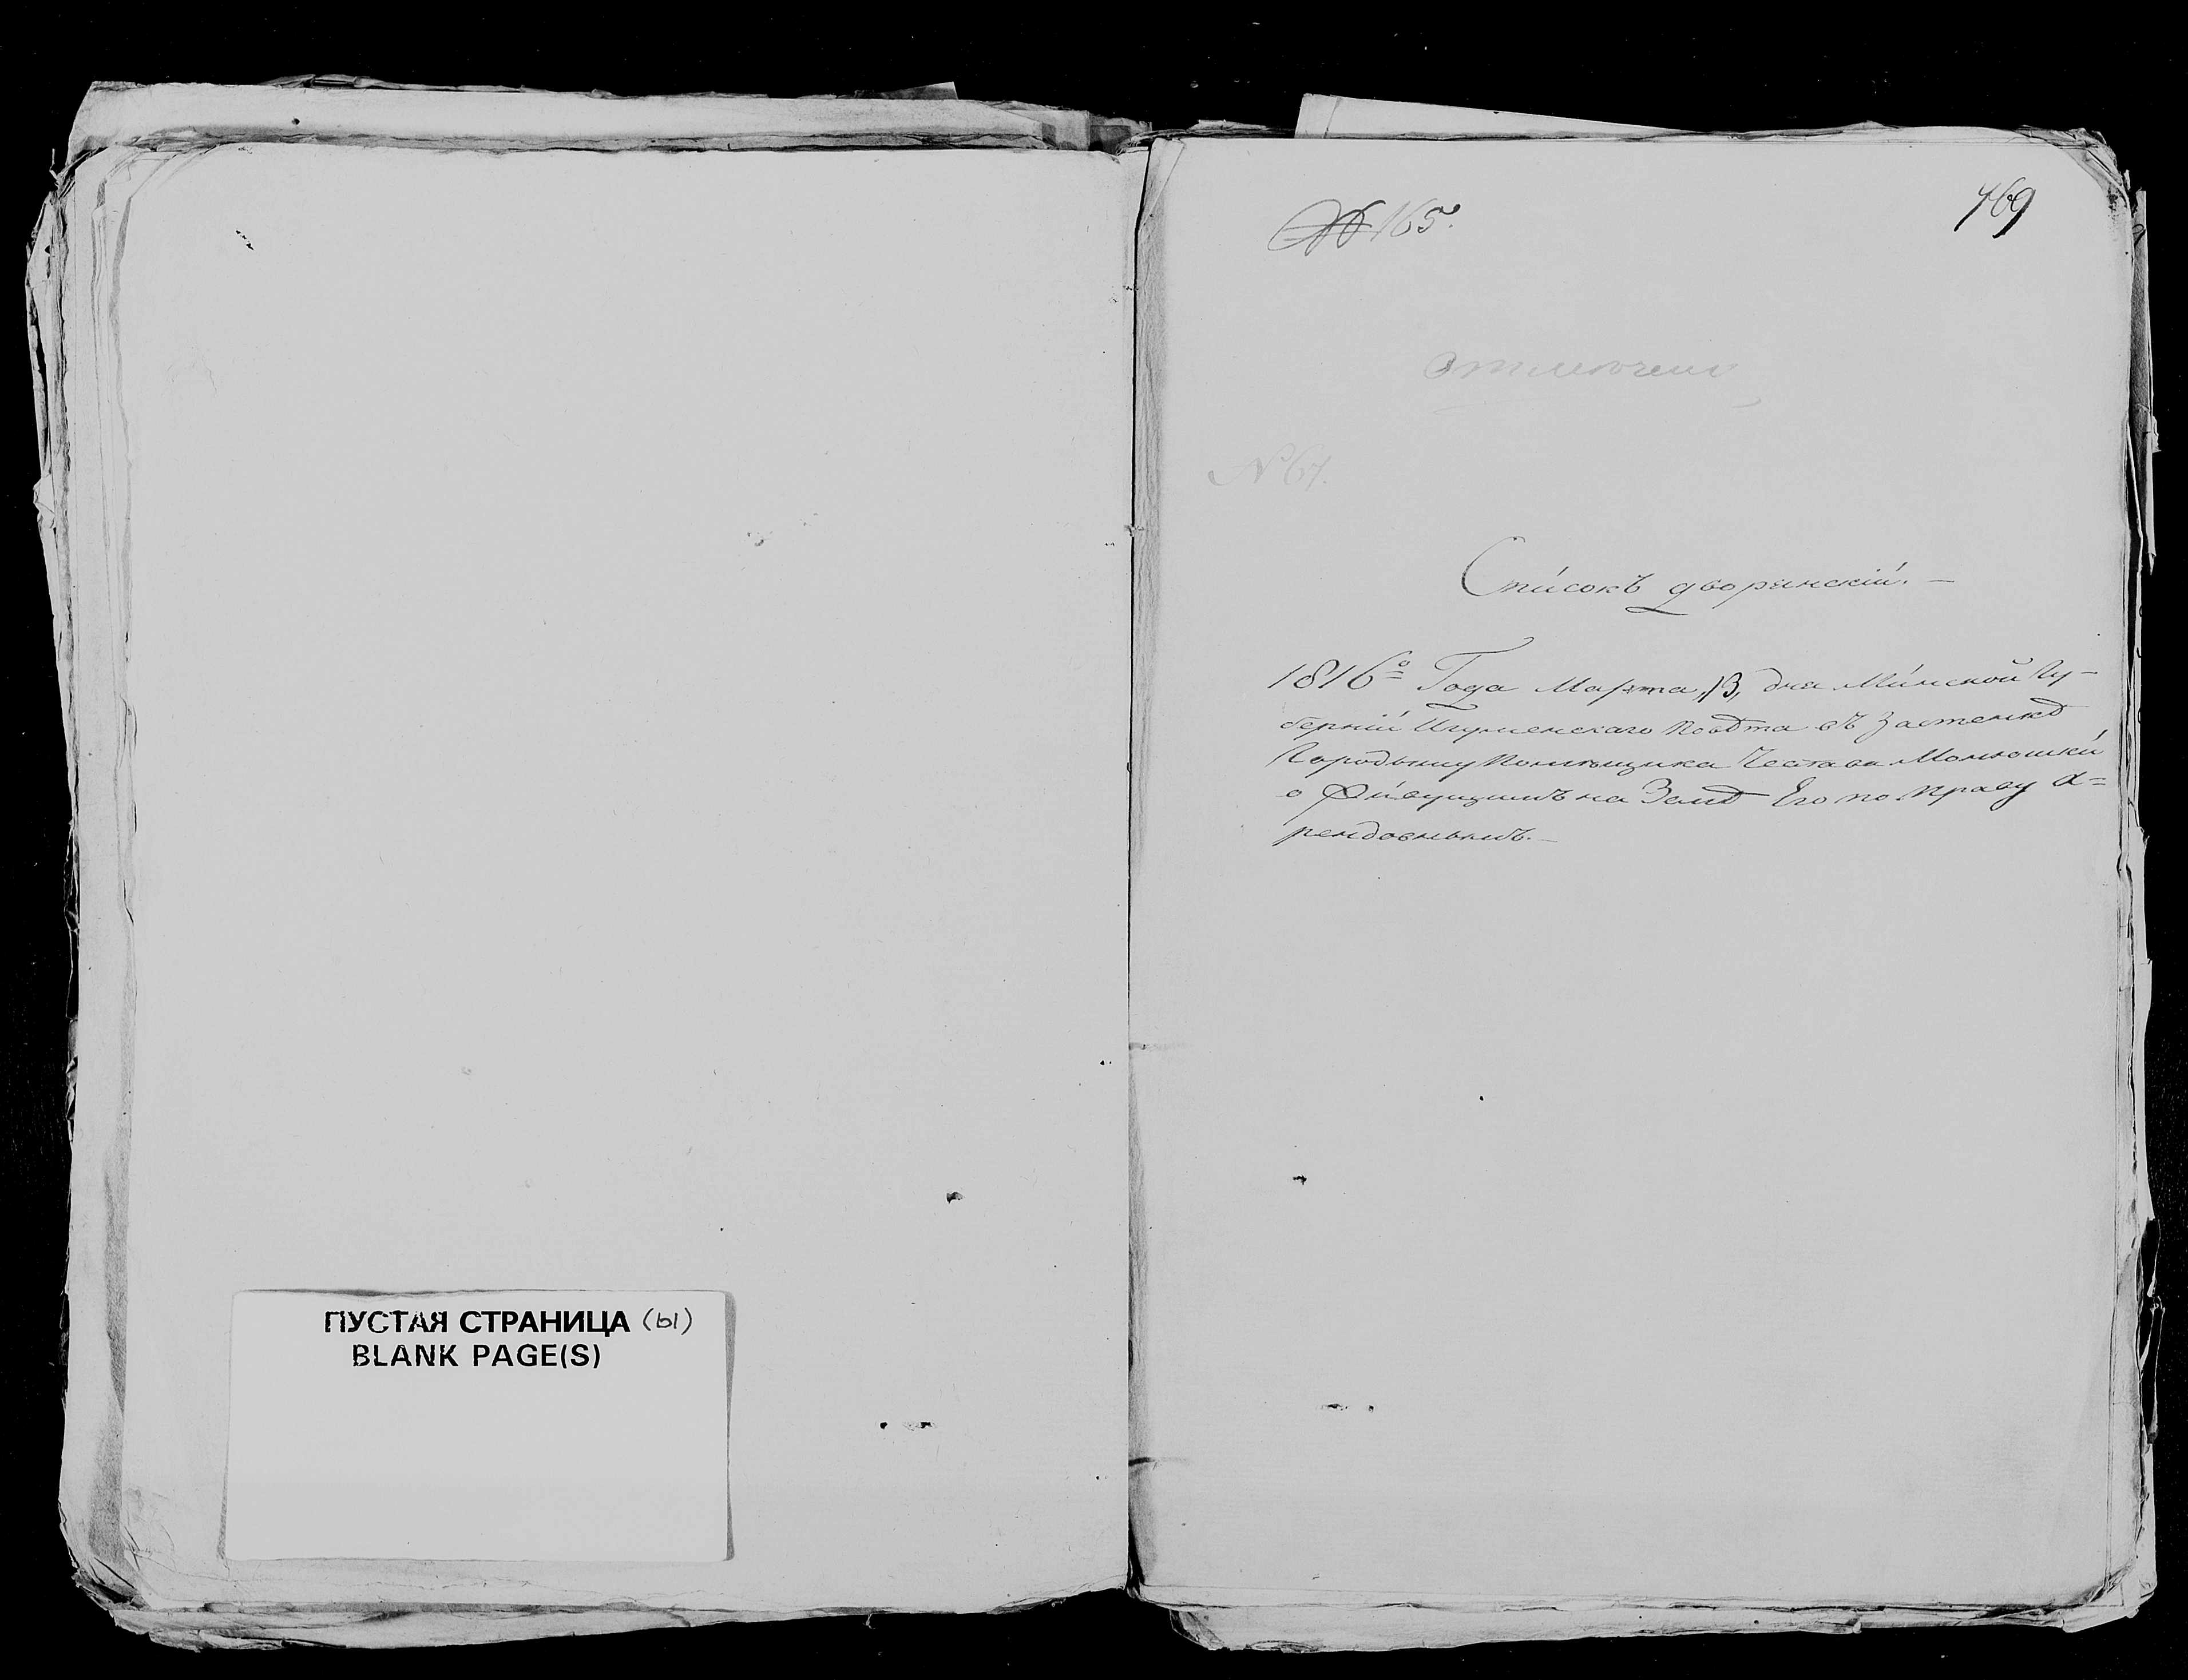 ПУСТАЯ СТРАНИЦА (ы)
BLANK PAGE(S)
№ 165.
469
отмечено
№ 67.
Список дворянскій. —
1816го Года Марта 13, дня Минской Гу-
берніи Игуменскаго Повѣта въ Застенкѣ
Городыщу Помѣщика Чеслава Монюшки
о Живущимъ на Земѣ Его по праву а=
рендовнымъ. —